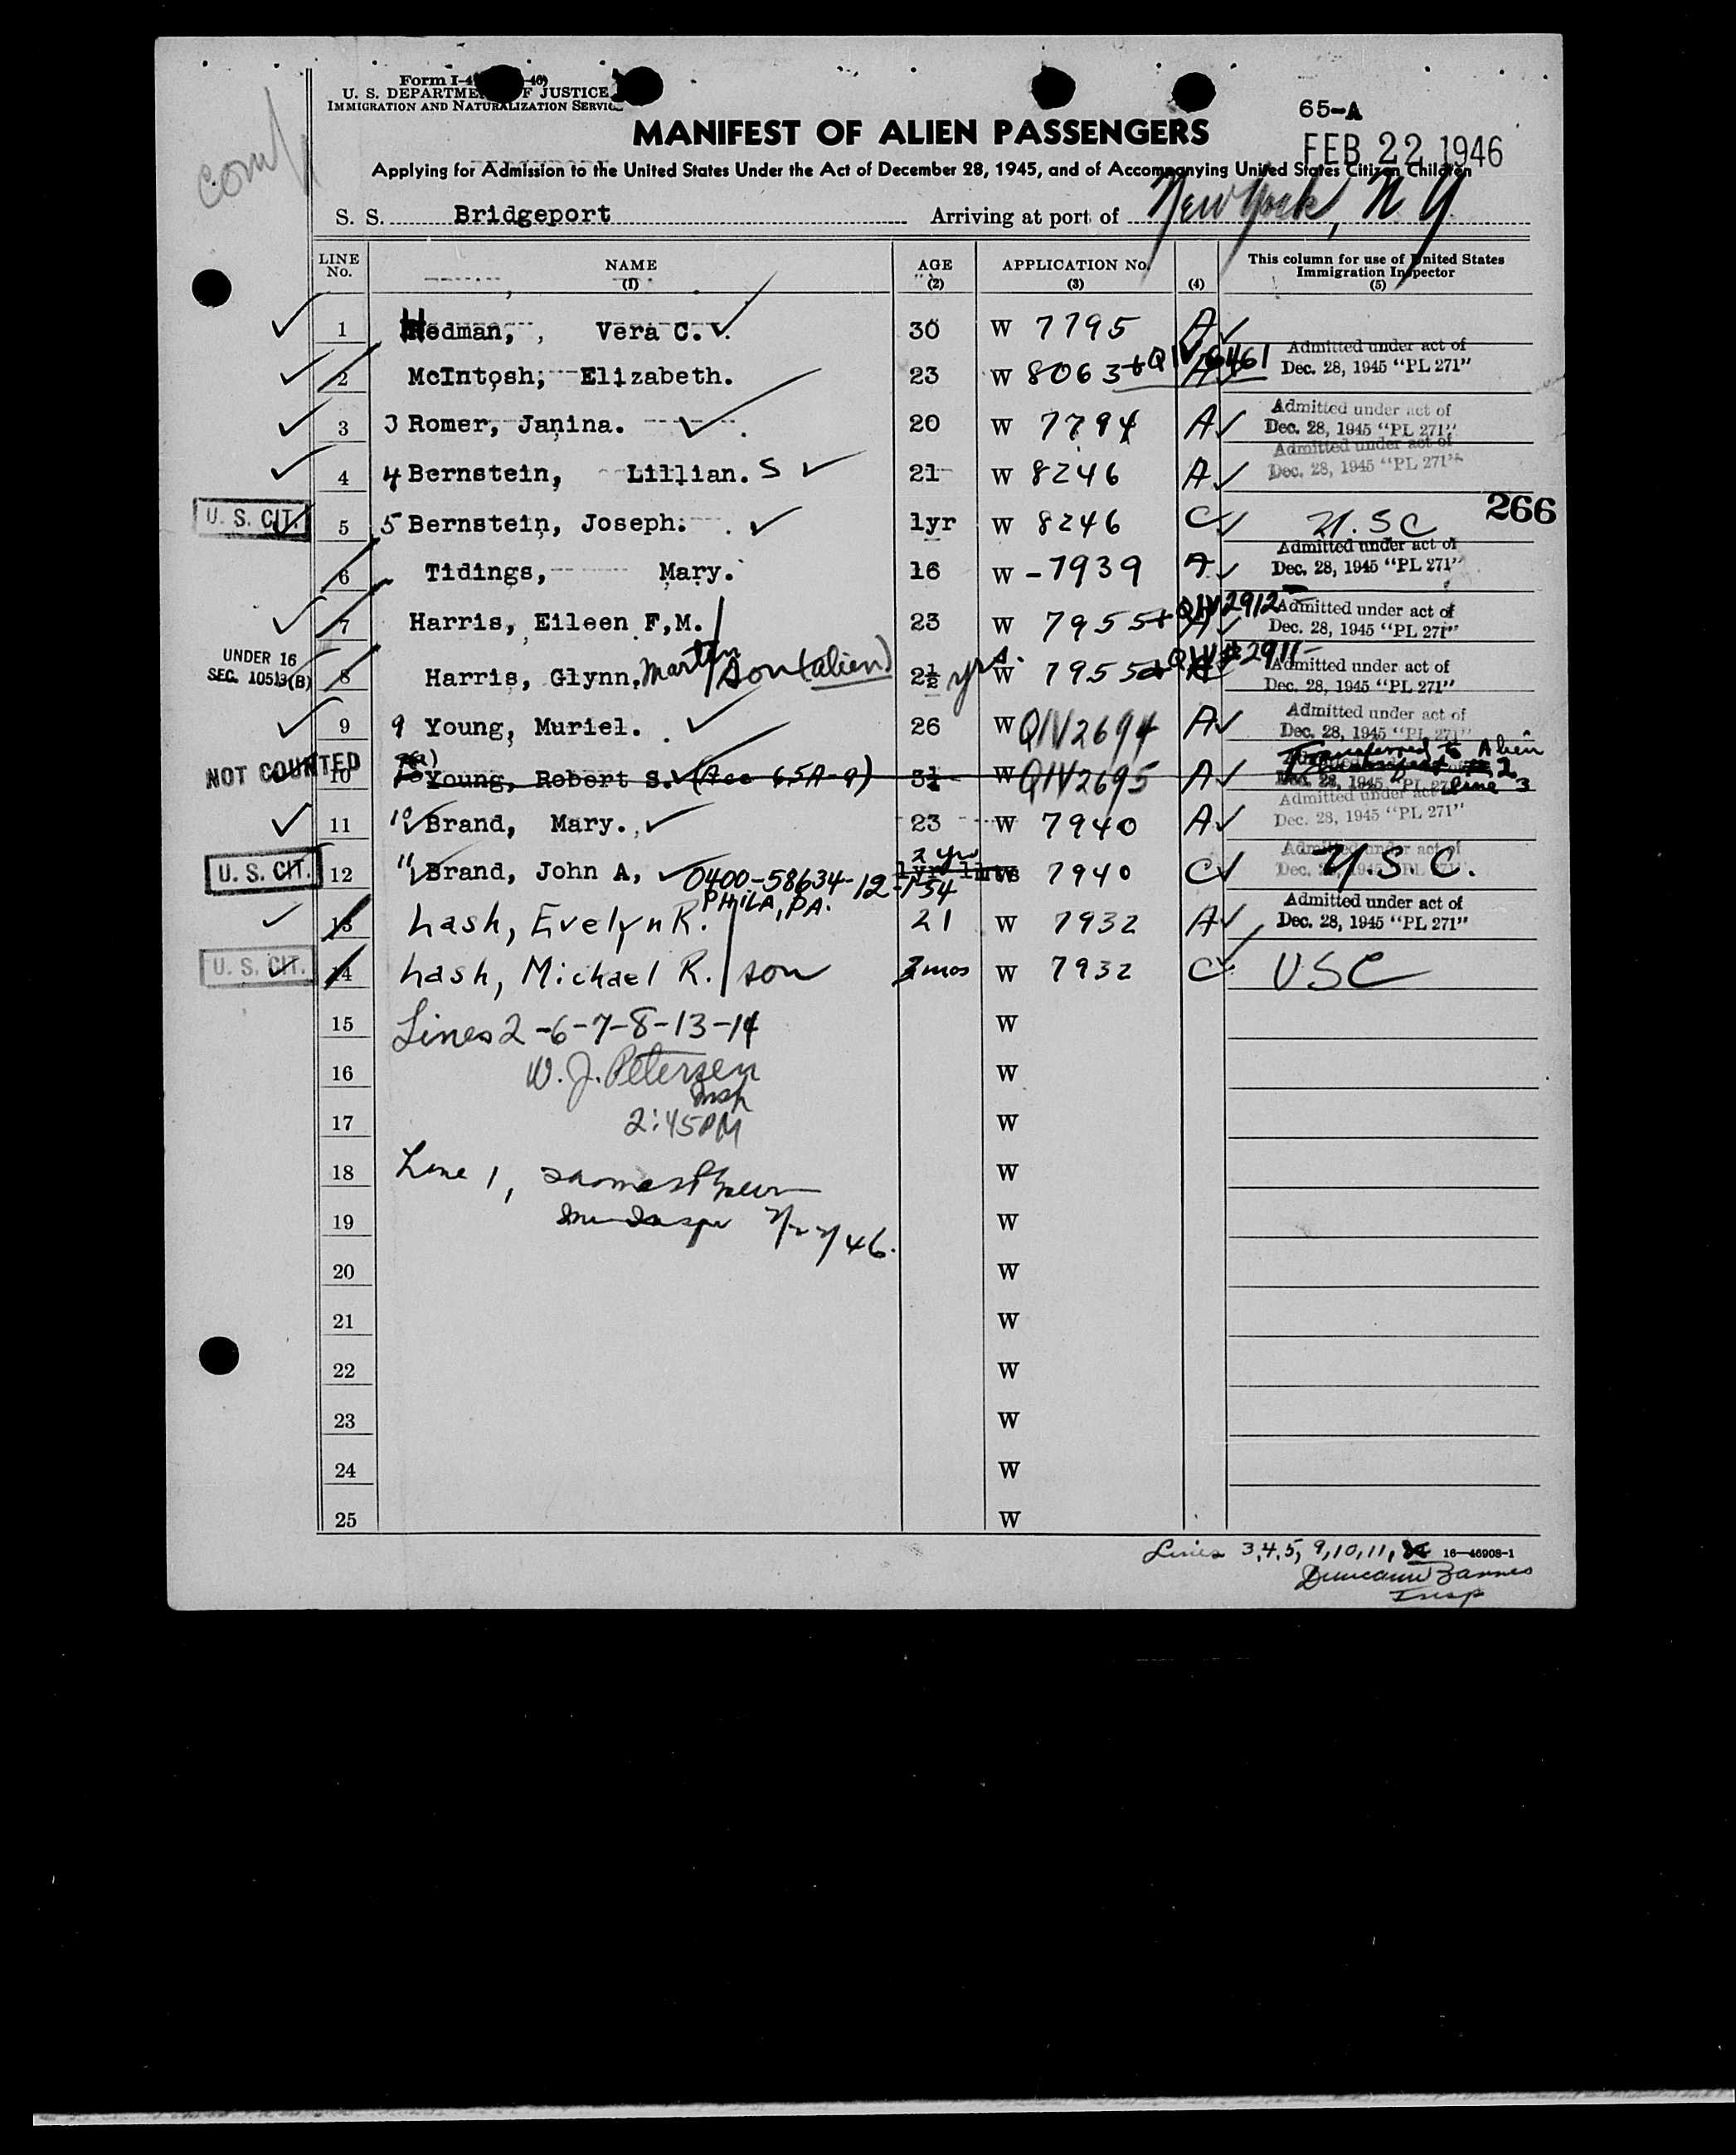 comp
Form I-4 -46)
U. S. DEPARTMENT OF JUSTICE
IMMIGRATION AND NATURALIZATION SERVICE
65-A
MANIFEST OF ALIEN PASSENGERS
FEB 22 1946
Applying for Admission to the United States Under the Act of December 28, 1945, and of Accompanying United States Citizen Children
S. S. Bridgeport Arriving at port of New York, N Y
LINE No. NAME (1) AGE (2) APPLICATION No. (3) (4) This column for use of United States Immigration Inspector (5)
1 Hedman, , Vera C. 30 W 7795 A
Admitted under act of
2 McIntosh, Elizabeth. 23 W 8063 + QIV 6461 A Dec. 28, 1945 "PL 271"
Admitted under act of
3 3 Romer, Janina. 20 W 7794 A Dec. 28, 1945 "PL 271"
Admitted under act of
4 4 Bernstein, Lillian. S 21 W 8246 A Dec. 28, 1945 "PL 271"
266
U. S. CIT. 5 5 Bernstein, Joseph. 1yr W 8246 C U.S C
Admitted under act of
6 Tidings, Mary. 16 W - 7939 A Dec. 28, 1945 "PL 271"
Admitted under act of
7 Harris, Eileen F,M. 23 W 7955 + QIV 2912 A Dec. 28, 1945 "PL 271"
UNDER 16
SEC. 10513(B)
Admitted under act of
8 Harris, Glynn, Martyn / son (alien) 2½ yrs. W 7955 + QIV # 2911 A Dec. 28, 1945 "PL 271"
Admitted under act of
9 9 Young, Muriel. 26 W QIV 2694 A Dec. 28, 1945 "PL 271"
NOT COUNTED 10 Young, Robert S. (Acc 65A-9) 3½ W QIV 2695 A Transferred to Alien Manifest # 2 line 3
Dec. 28, 1945 "PL 271"
Admitted under act of
11 10 Brand, Mary. 23 W 7940 A Dec. 28, 1945 "PL 271"
2 yrs
Admitted under act of
U. S. CIT. 12 11 Brand, John A, 1yr 11mts W 7940 C Dec. 28, 1945 "PL 271" U.S. C.
0400-58634-12-154
PHILA, PA.
Admitted under act of
13 Lash, Evelyn R. 21 W 7932 A Dec. 28, 1945 "PL 271"
U. S. CIT. 14 Lash, Michael R. / son 3 mos W 7932 C USC
15 Lines 2-6-7-8-13-14 W
16 W. J. Petersen W
Insp
17 2:45PM W
18 Line 1, W
19 W
2/22/46.
20 W
21 W
22 W
23 W
24 W
25 W
Lines 3,4,5, 9,10,11, 16—46908-1
Insp